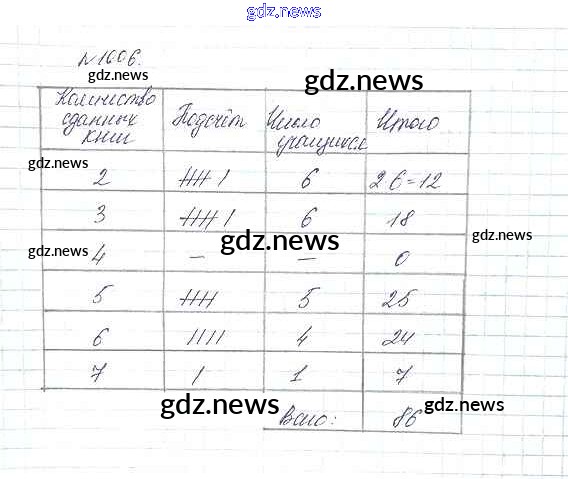 gdz.news
№1006.
gdz.news
gdz.news
Количество сданных книг Подсчёт Число учащихся Итого
gdz.news
2 HH I 6 2·6=12
3 HH I 6 18
gdz.news
gdz.news
gdz.news
4 – – 0
5 HH 5 25
6 IIII 4 24
7 I 1 7
gdz.news
gdz.news
Всего: 86